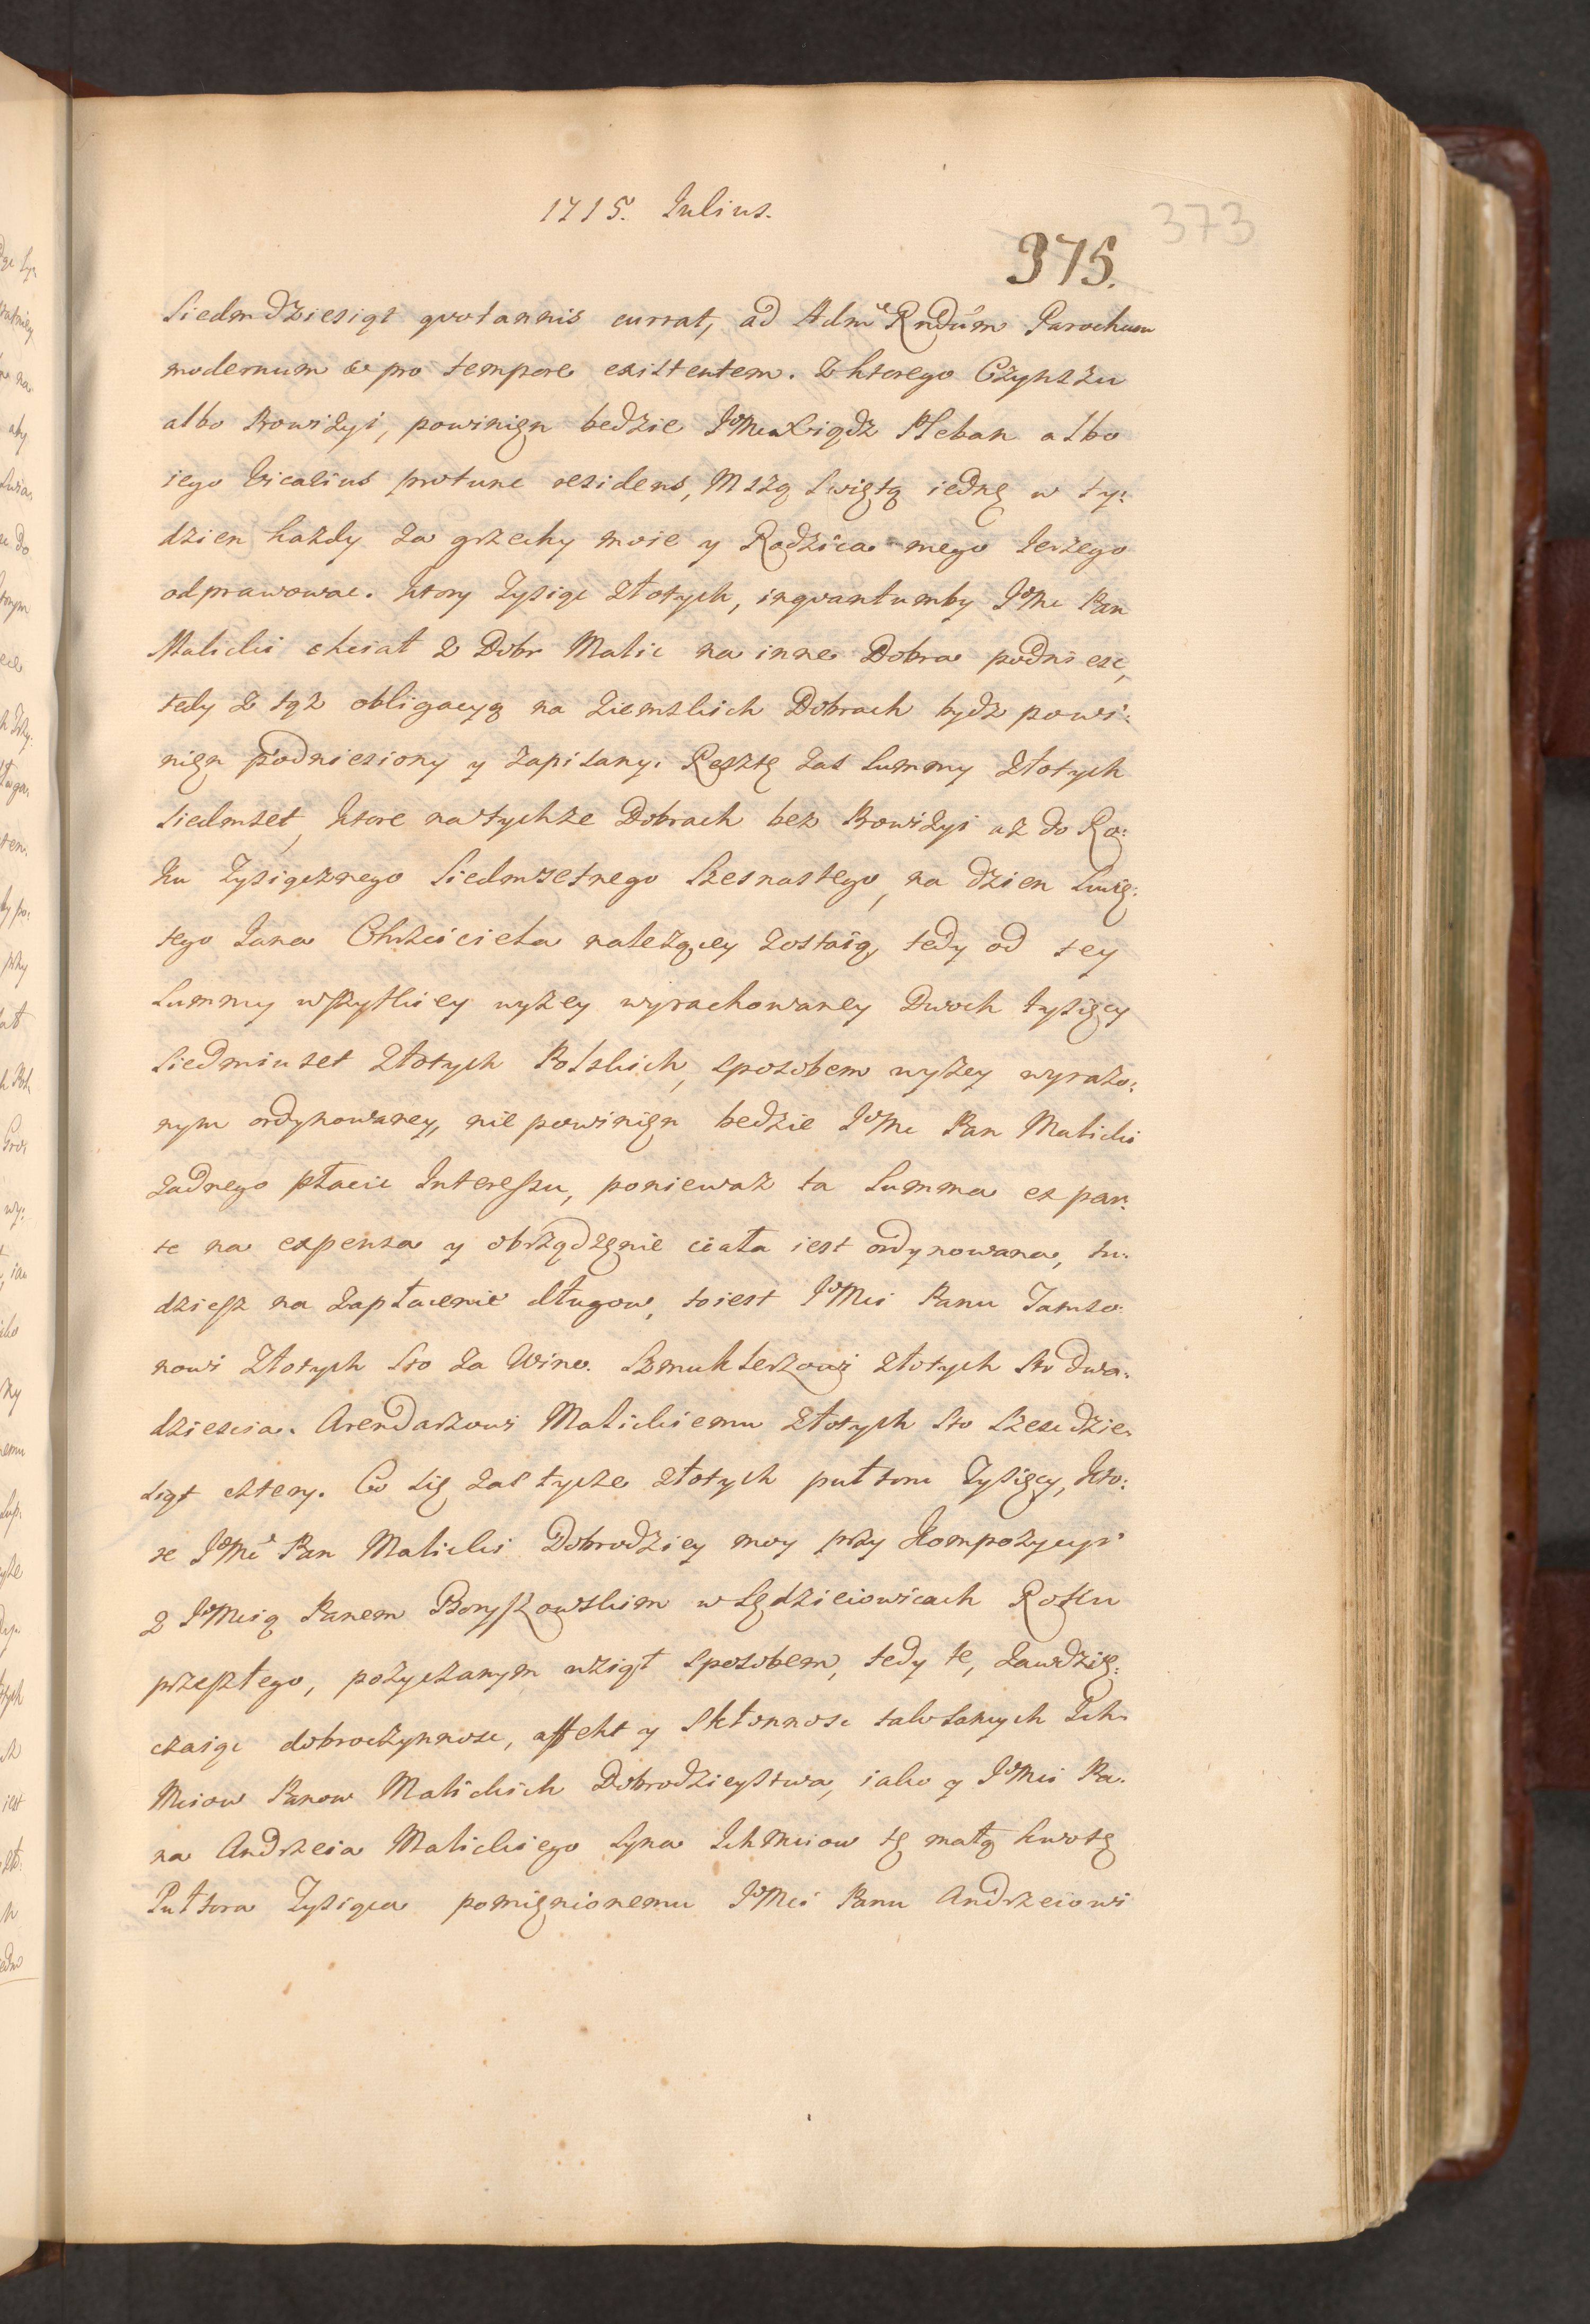 1715. Iulius.
373
375.
Siedmdziesiąt quotannis currat, ad Admͤ Rndum Parochum
modernum & pro tempore existentem. Z ktorego Czynszu
albo Prowizyi, powinięn bedzie JoMci Xiądz Pleban albo
iego Vicarius protunc residens, Mszą Swiętą iednę w ty:
dzien każdy za grzechy moie y Rodzica mego Ierzego
odprawowac. Ktory Tysiąc złotych, inquantumby JoMc Pan
Malicki chciał z Dobr Malic na inne Dobra podniesc,
tedy z tąż obligacyą na Ziemskich Dobrach bydz powi:
nięn podniesiony y zapisany. Resztę zas Summy Złotych
Siedmset, ktore na tychże Dobrach bez Prowizyi aż do Ro:
ku Tysiącznego Siedmsetnego Szesnastego, na dzien Swię:
tego Iana Chrzciciela należącey zostaią, tedy od tey
Summy wszytkiey wyzey wyrachowaney Dwoch tysięcy
Siedmiuset Złotych Polskich, sposobem wyżey wyrażo:
nym ordynowaney, nie powinięn bedzie JoMc Pan Malicki
żadnego płacic Interessu, ponieważ ta Summa ex par:
te na expensa y obrządzęnie ciała iest ordynowana, tu:
dziesz na zapłacenie długow, to iest JoMci Panu Jamso:
nowi Złotych Sto za Wino. Szmuklerzowi złotych sto dwa:
dziescia. Arendarzowi Malickiemu złotych sto szescdzie:
siąt cztery. Co się zas tycze złotych pułtoru Tysięcy, kto:
re JoMc Pan Malicki Dobrodziey moy przy Kompozycyi
z JoMcią Panem Boryszowskim w Sędzieiowicach Roku
przeszłego, pożyczanym wziął sposobem, tedy te, zawdzię:
czaiąc dobroczynnosc, affekt y skłonnosc takosamych Ich
Mciow Panow Malickich Dobrodzieystwa, iako y JoMci Pa:
na Andrzeia Malickiego Syna IchMciow tę małą kwotę
Pułtora Tysiąca pomięnionemu JoMci Panu Andrzeiowi